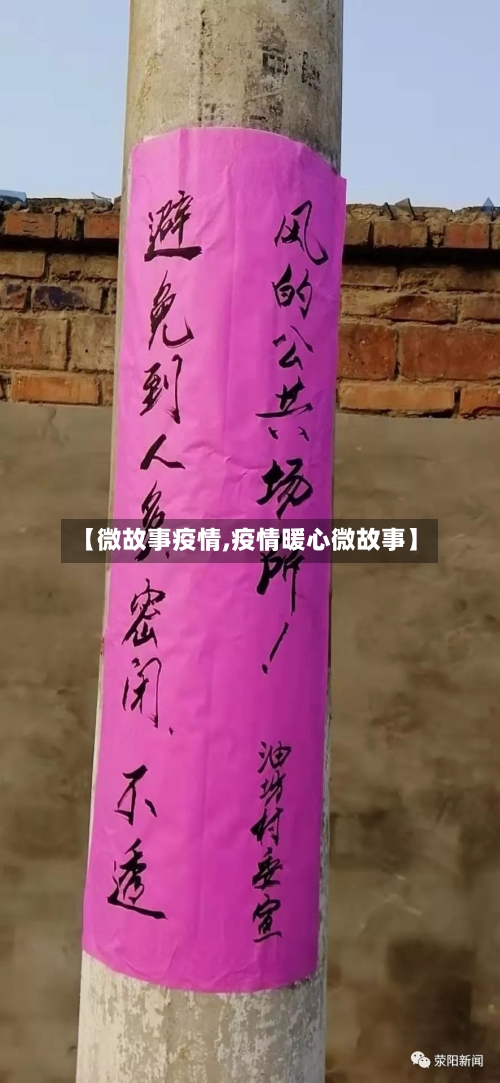 避免到人多、密闭、不透
风的公共场所！
油坊村委宣
【微故事疫情,疫情暖心微故事】
荥阳新闻